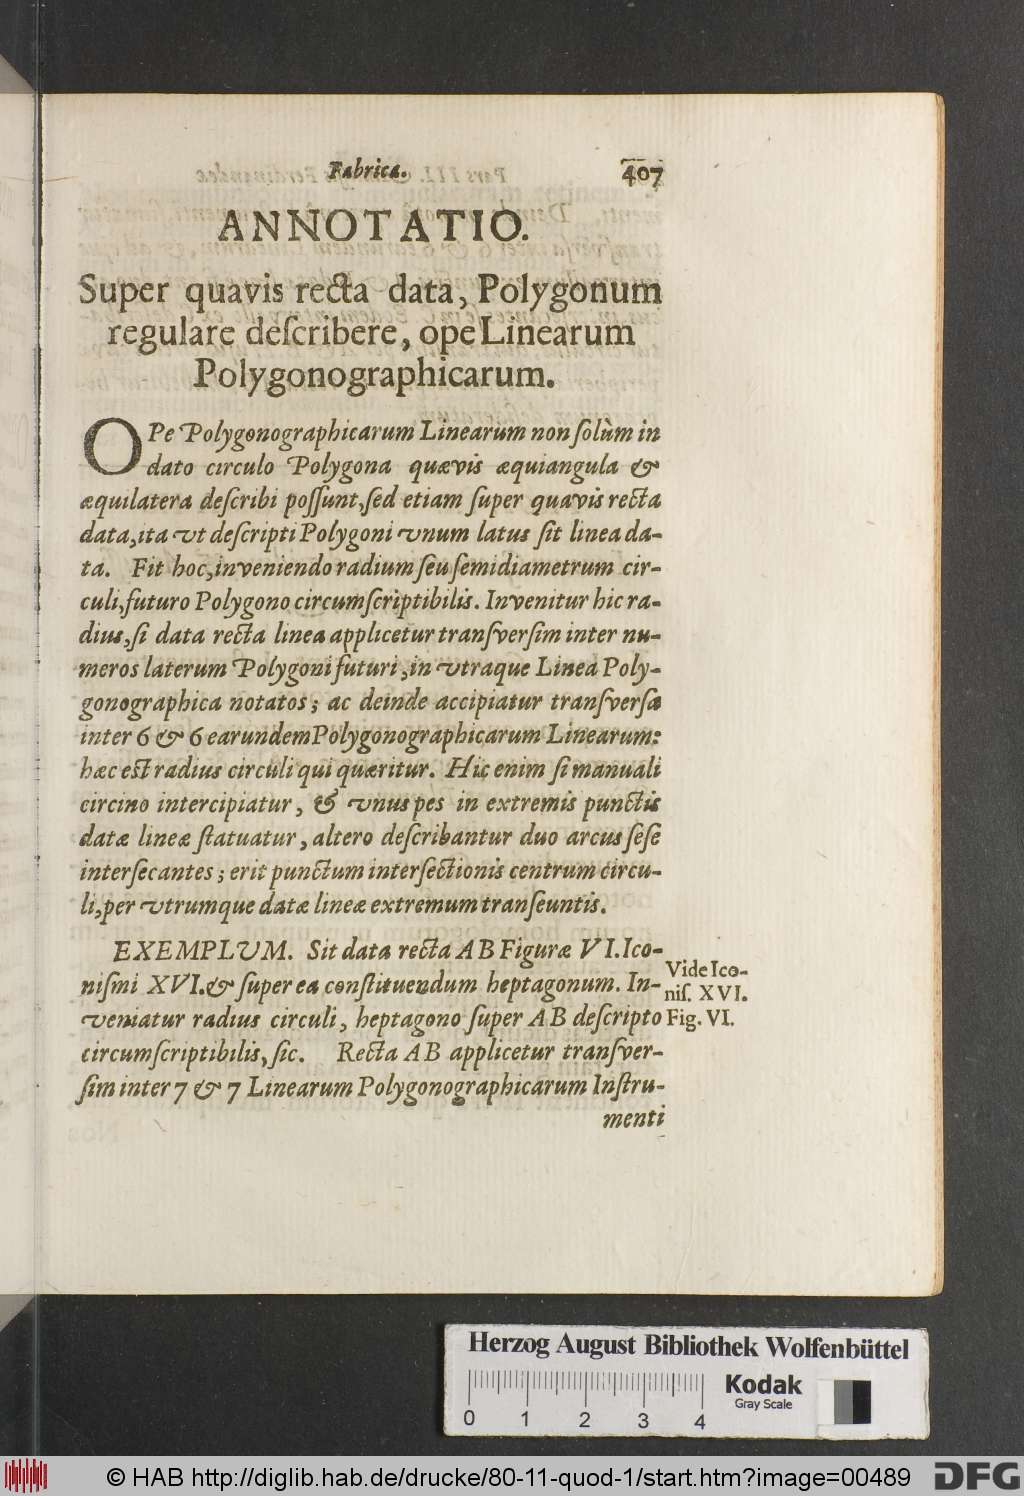 Fabrica. 407
ANNOTATIO.
Super quavis recta data, Polygonum
regulare deſcribere, ope Linearum
Polygonographicarum.
OPe Polygonographicarum Linearum non ſolùm in
dato circulo Polygona quævis æquiangula &
æquilatera deſcribi poſſunt, ſed etiam ſuper quavis recta
data, ita vt deſcripti Polygoni vnum latus ſit linea da-
ta. Fit hoc, inveniendo radium ſeu ſemidiametrum cir-
culi, futuro Polygono circumſcriptibilis. Invenitur hic ra-
dius, ſi data recta linea applicetur tranſverſim inter nu-
meros laterum Polygoni futuri, in vtraque Linea Poly-
gonographica notatos; ac deinde accipiatur tranſverſa
inter 6 & 6 earundem Polygonographicarum Linearum:
hæc est radius circuli qui quæritur. Hic enim ſi manuali
circino intercipiatur, & vnus pes in extremis punctis
datæ lineæ ſtatuatur, altero deſcribantur duo arcus ſeſe
interſecantes; erit punctum interſectionis centrum circu-
li, per vtrumque datæ lineæ extremum tranſeuntis.
EXEMPLUM. Sit data recta AB Figuræ VI. Ico-
niſmi XVI. & ſuper ea conſtituendum heptagonum. In-
veniatur radius circuli, heptagono ſuper AB deſcripto
circumſcriptibilis, ſic. Recta AB applicetur tranſver-
ſim inter 7 & 7 Linearum Polygonographicarum Inſtru-
menti
Vide Ico-
niſ. XVI.
Fig. VI.
Herzog August Bibliothek Wolfenbüttel
0 1 2 3 4
Kodak
Gray Scale
© HAB http://diglib.hab.de/drucke/80-11-quod-1/start.htm?image=00489
DFG